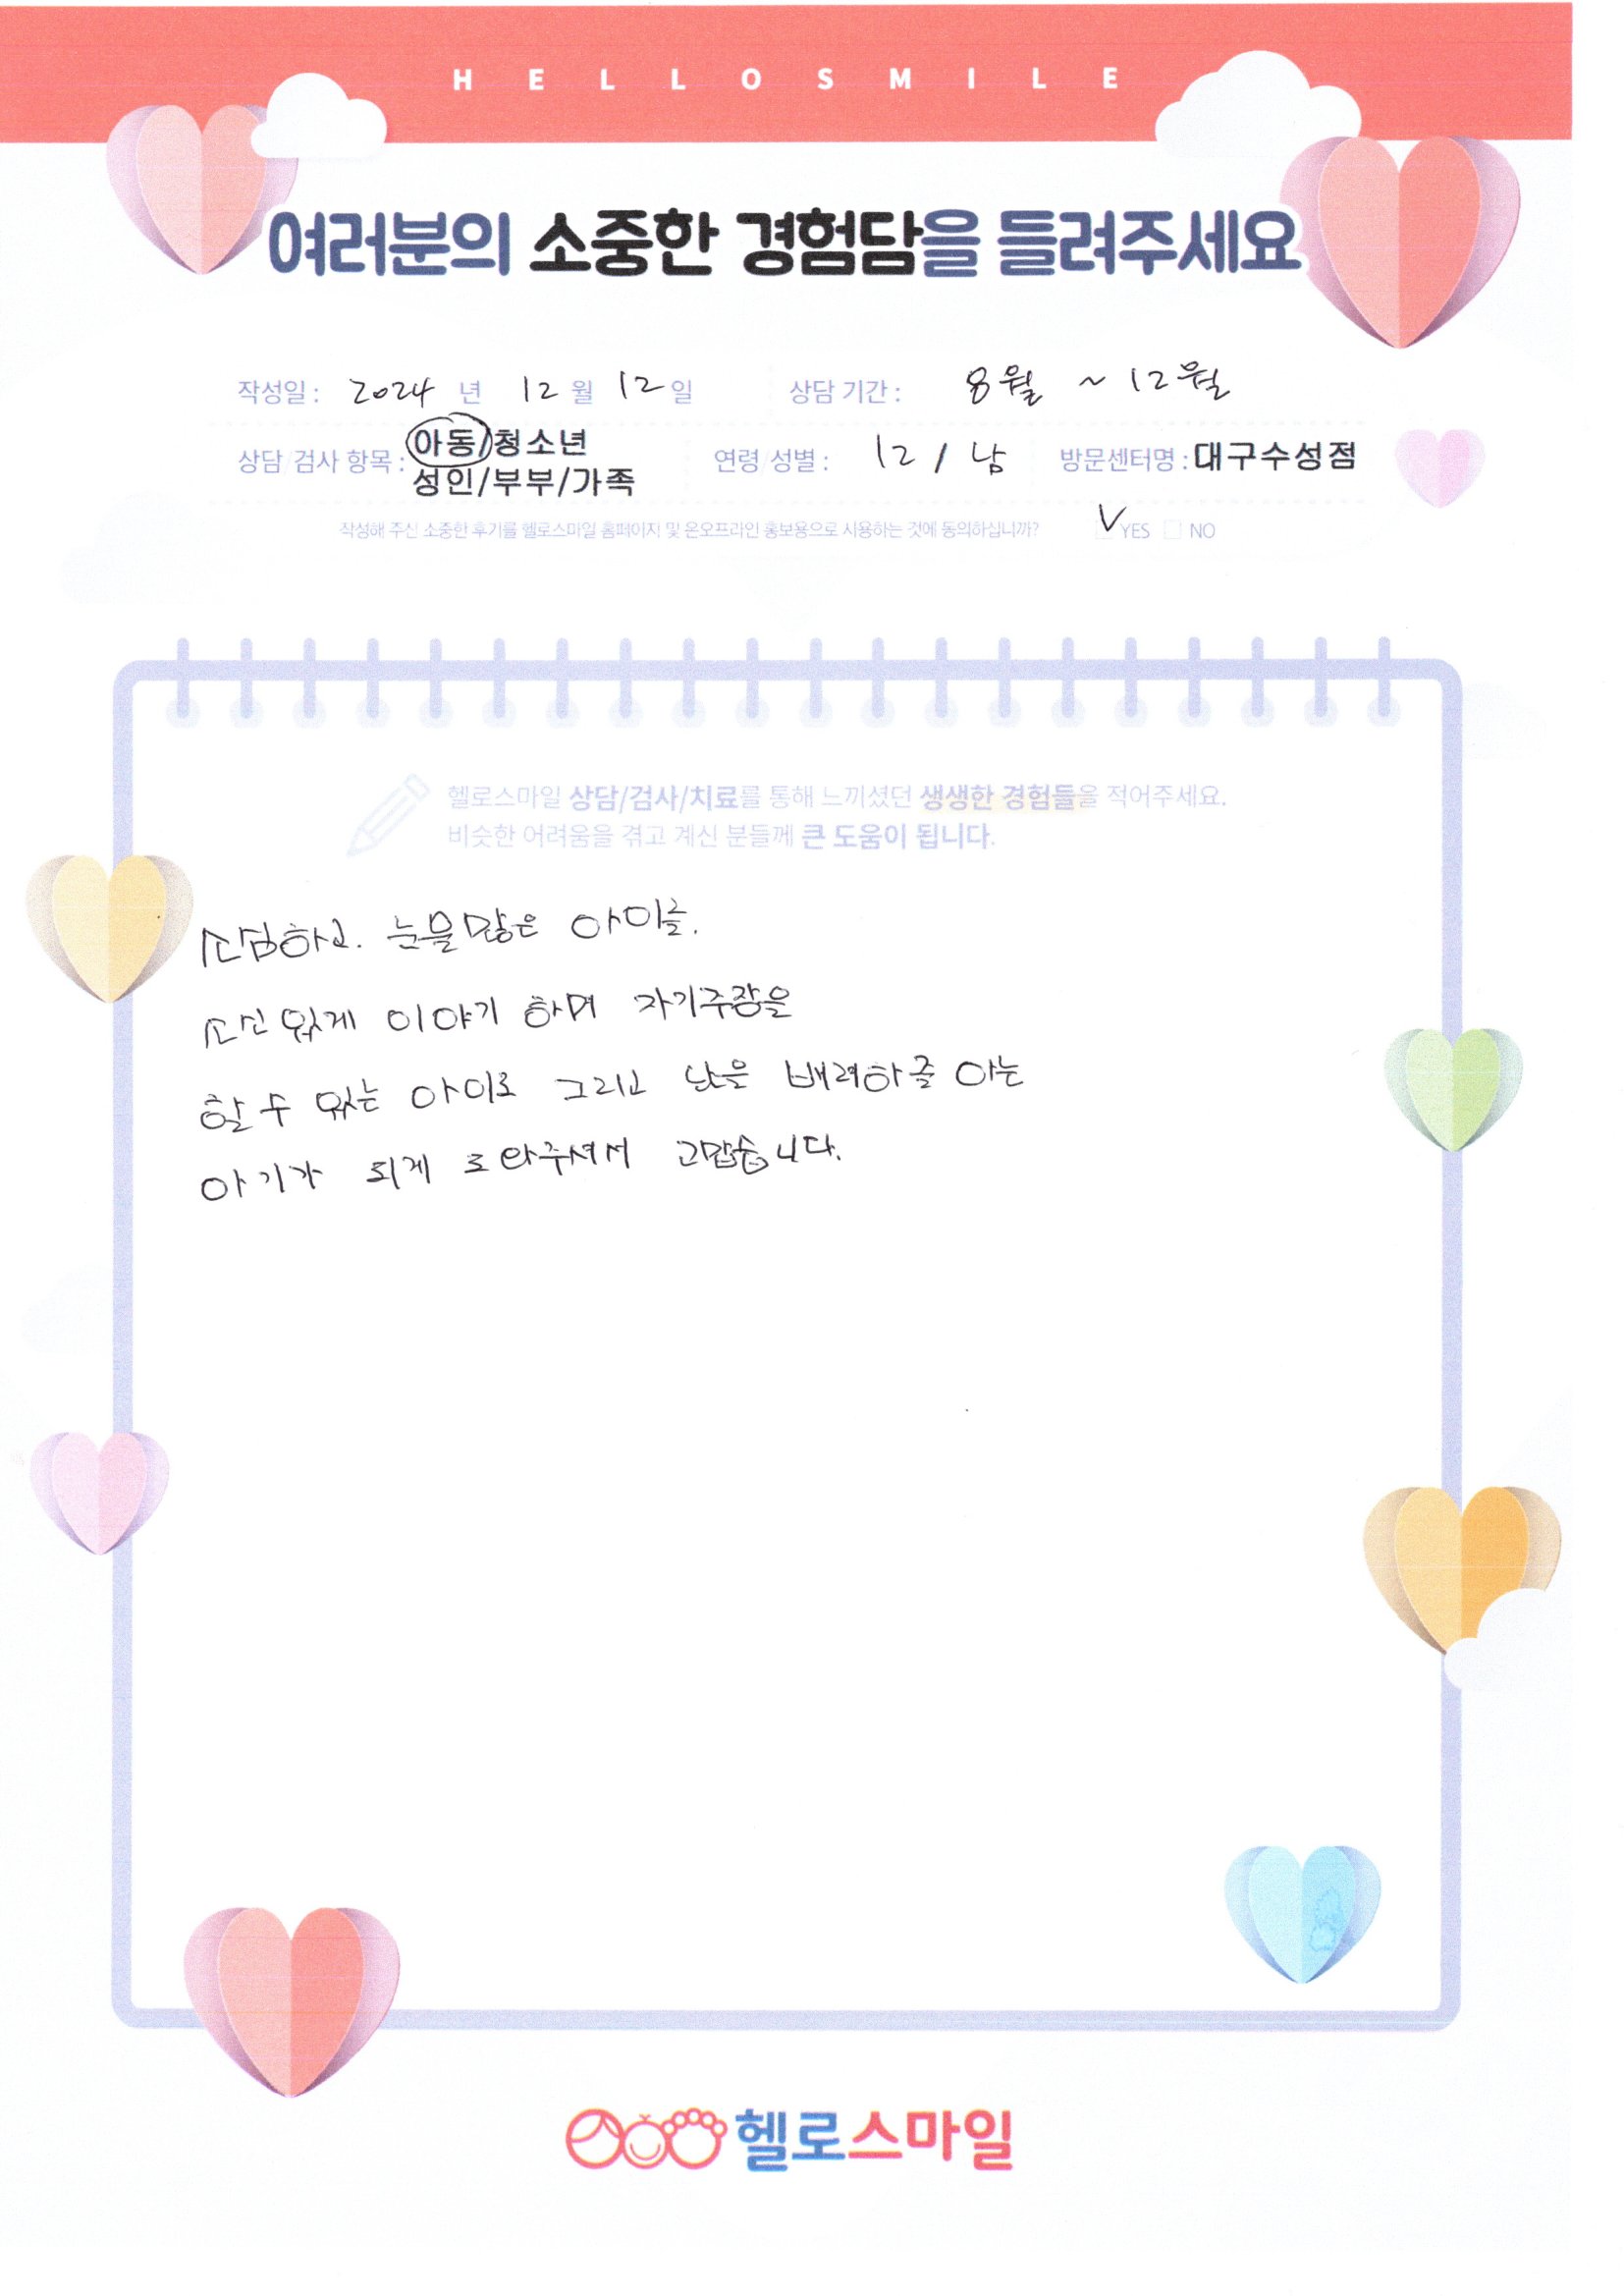 HELLOSMILE
여러분의 소중한 경험담을 들려주세요
작성일 : 2024 년 12 월 12 일 상담 기간 : 8월 ~ 12월
상담/검사 항목 : 아동/청소년
성인/부부/가족
연령/성별 : 12 / 남 방문센터명 : 대구수성점
작성해 주신 소중한 후기를 헬로스마일 홈페이지 및 온오프라인 홍보용으로 사용하는 것에 동의하십니까? V YES NO
헬로스마일 상담/검사/치료를 통해 느끼셨던 생생한 경험들을 적어주세요.
비슷한 어려움을 겪고 계신 분들께 큰 도움이 됩니다.
소심하고. 눈물많은 아이를.
소신 있게 이야기 하며 자기주장을
할 수 있는 아이로 그리고 남을 배려하줄 아는
아기가 되게 도와주셔서 고맙습니다.
헬로스마일